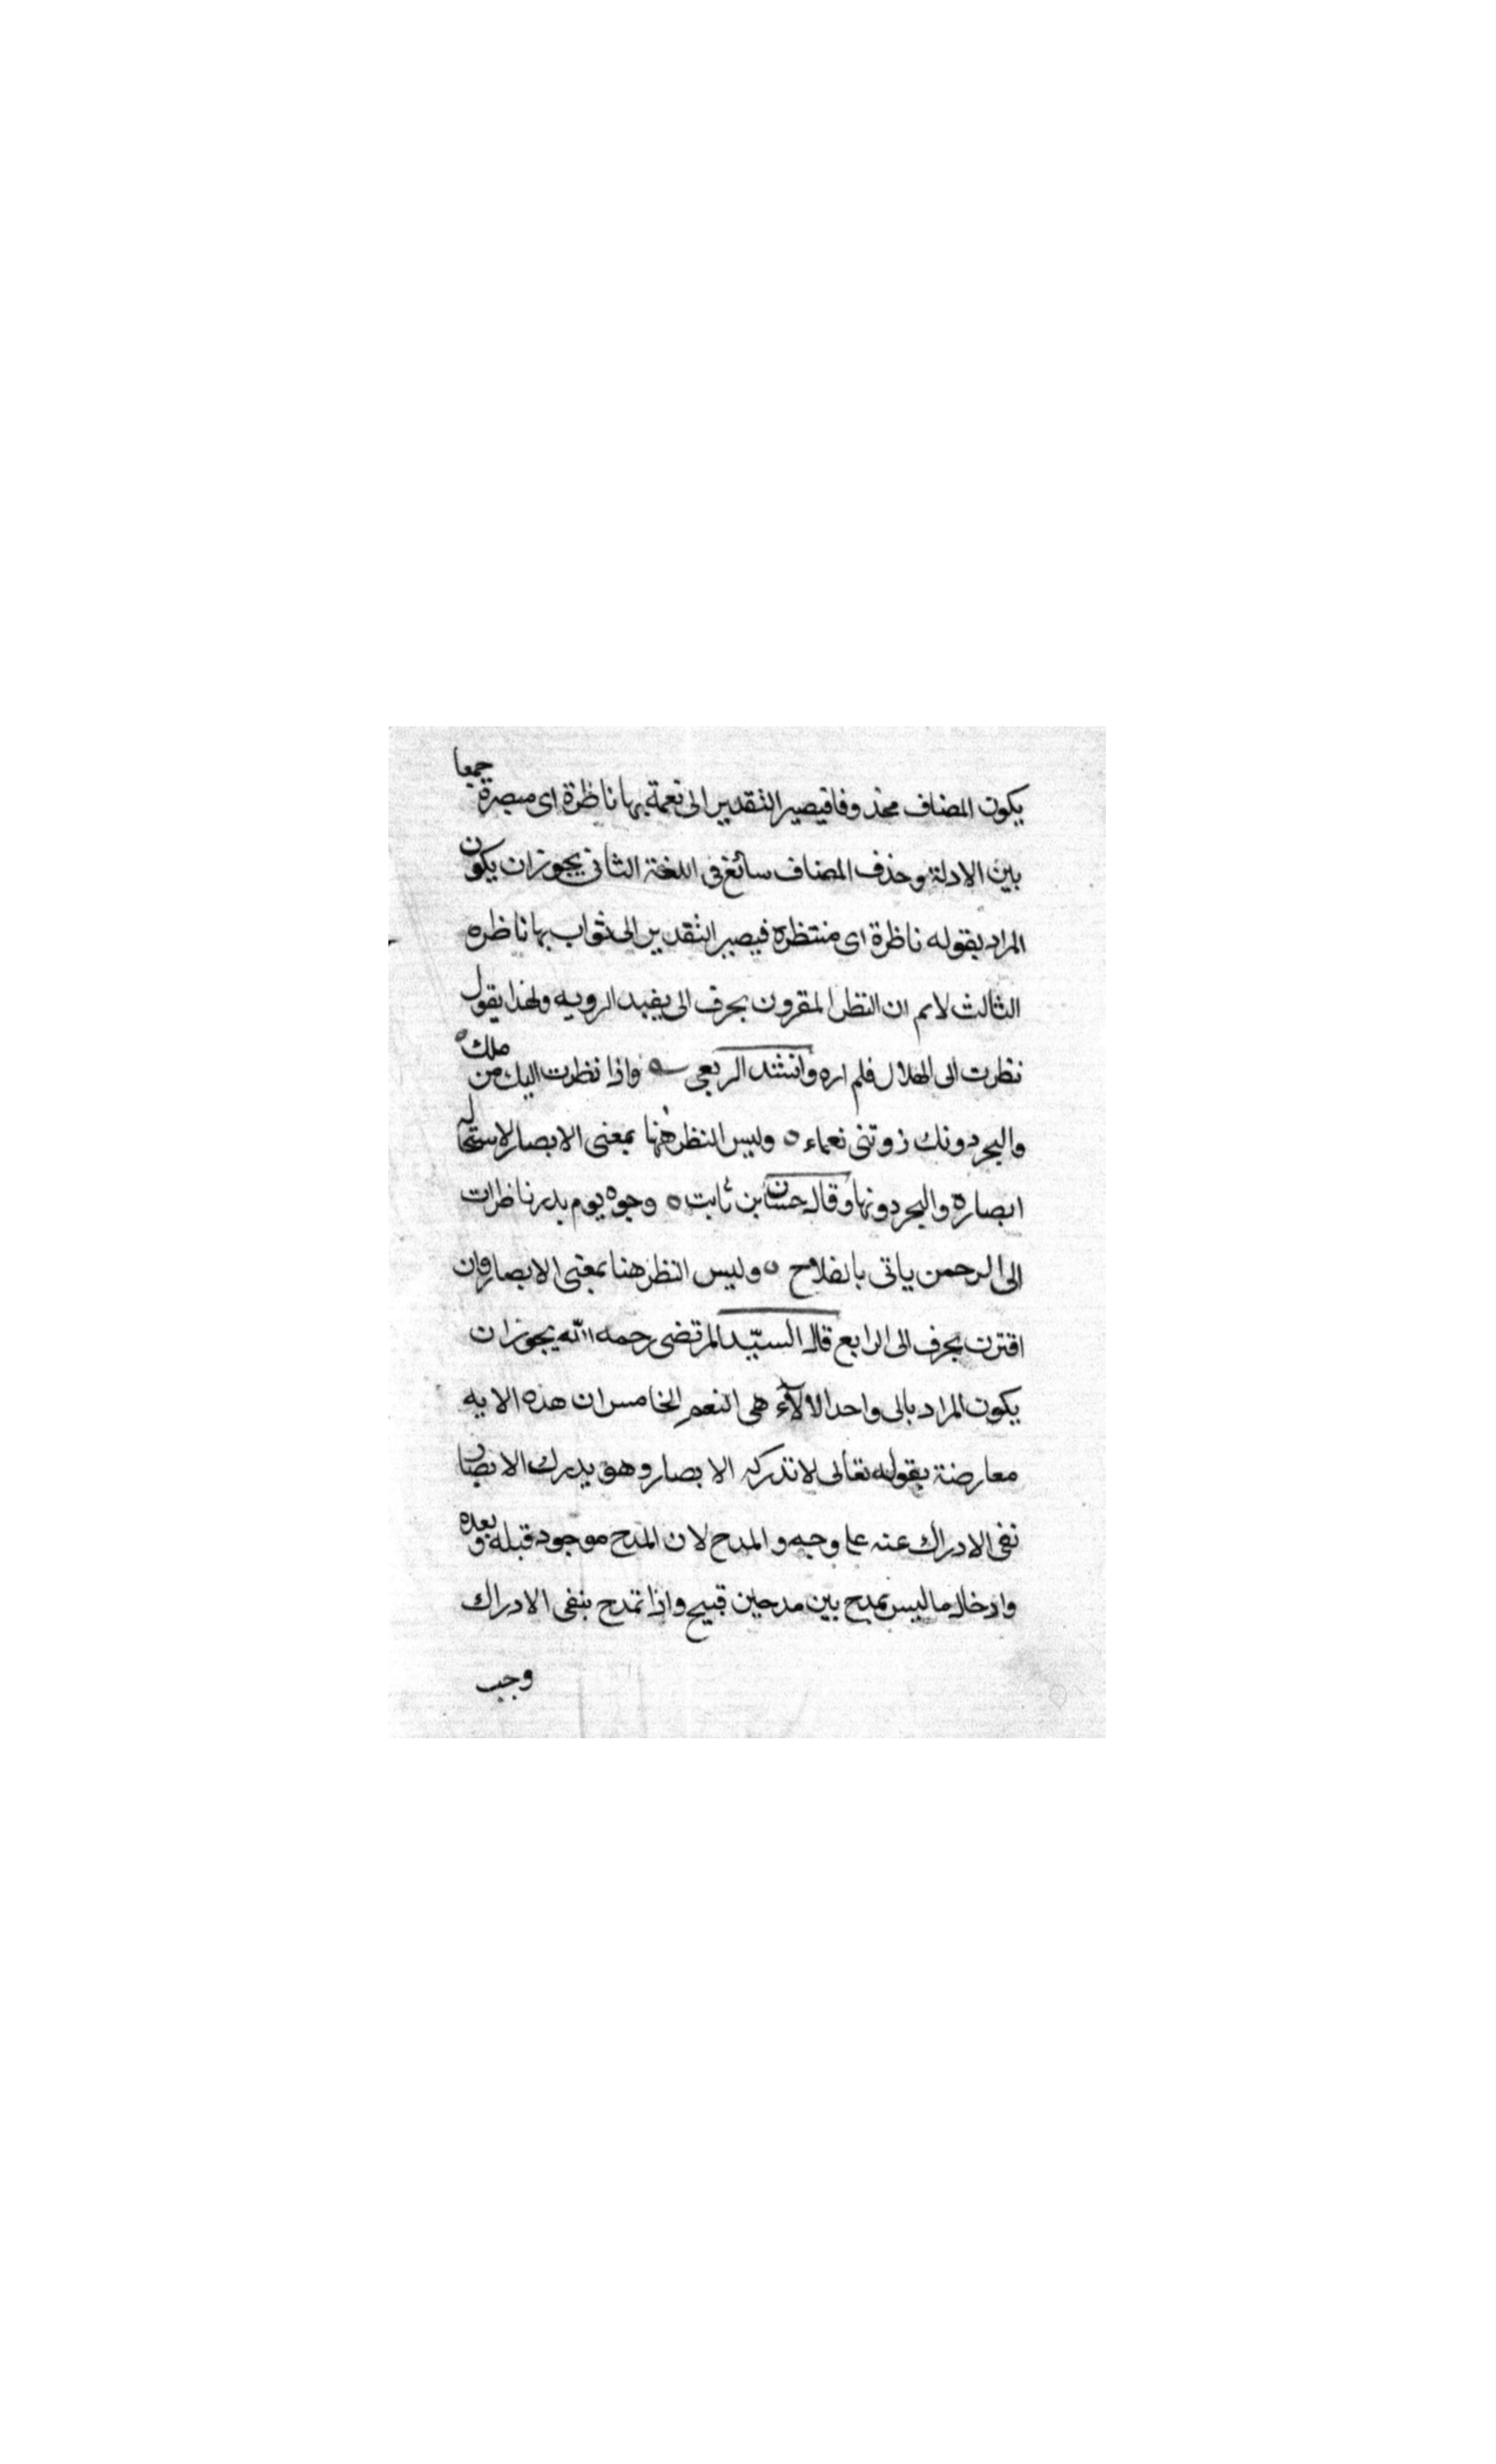 يكون المضاف محذوفا فيصير التقدير الى نعمة بها ناظرة اى مبصرة جمعا
بين الادلة وحذف المضاف سائغ فى اللغة الثانى يجوز ان يكون
المراد بقوله ناظرة اى منتظرة فيصير التقدير الى ثواب بها ناظره
الثالث لانم ان النظر المقرون بحرف الى يفيد الرويه ولهذا يقول
نظرت الى الهلال فلم اره وانشد الربعى واذا نظرت اليك من ملك
والبحر دونك زوتنى نعماء وليس النظر هنها بمعنى الابصار لاستحاله
ابصاره والبحر دونها وقال حسان بن ثابت وجوه يوم بدر ناظرات
الى الرحمن ياتى بالفلاح وليس النظر هنا بمعنى الابصار وان
اقترن بحرف الى الرابع قال السيّد المرتضى رحمه الله يجوز ان
يكون المراد بالى واحد الالآء هى النعم الخامس ان هذه الايه
معارضة بقوله تعالى لا تدركه الابصار وهو يدرك الابصار
نفى الادراك عنه على وجه و المدح لان المدح موجود قبله وبعده
وادخال ما ليس بمدح بين مدحين قبيح واذا تمدح بنفى الادراك
وجب